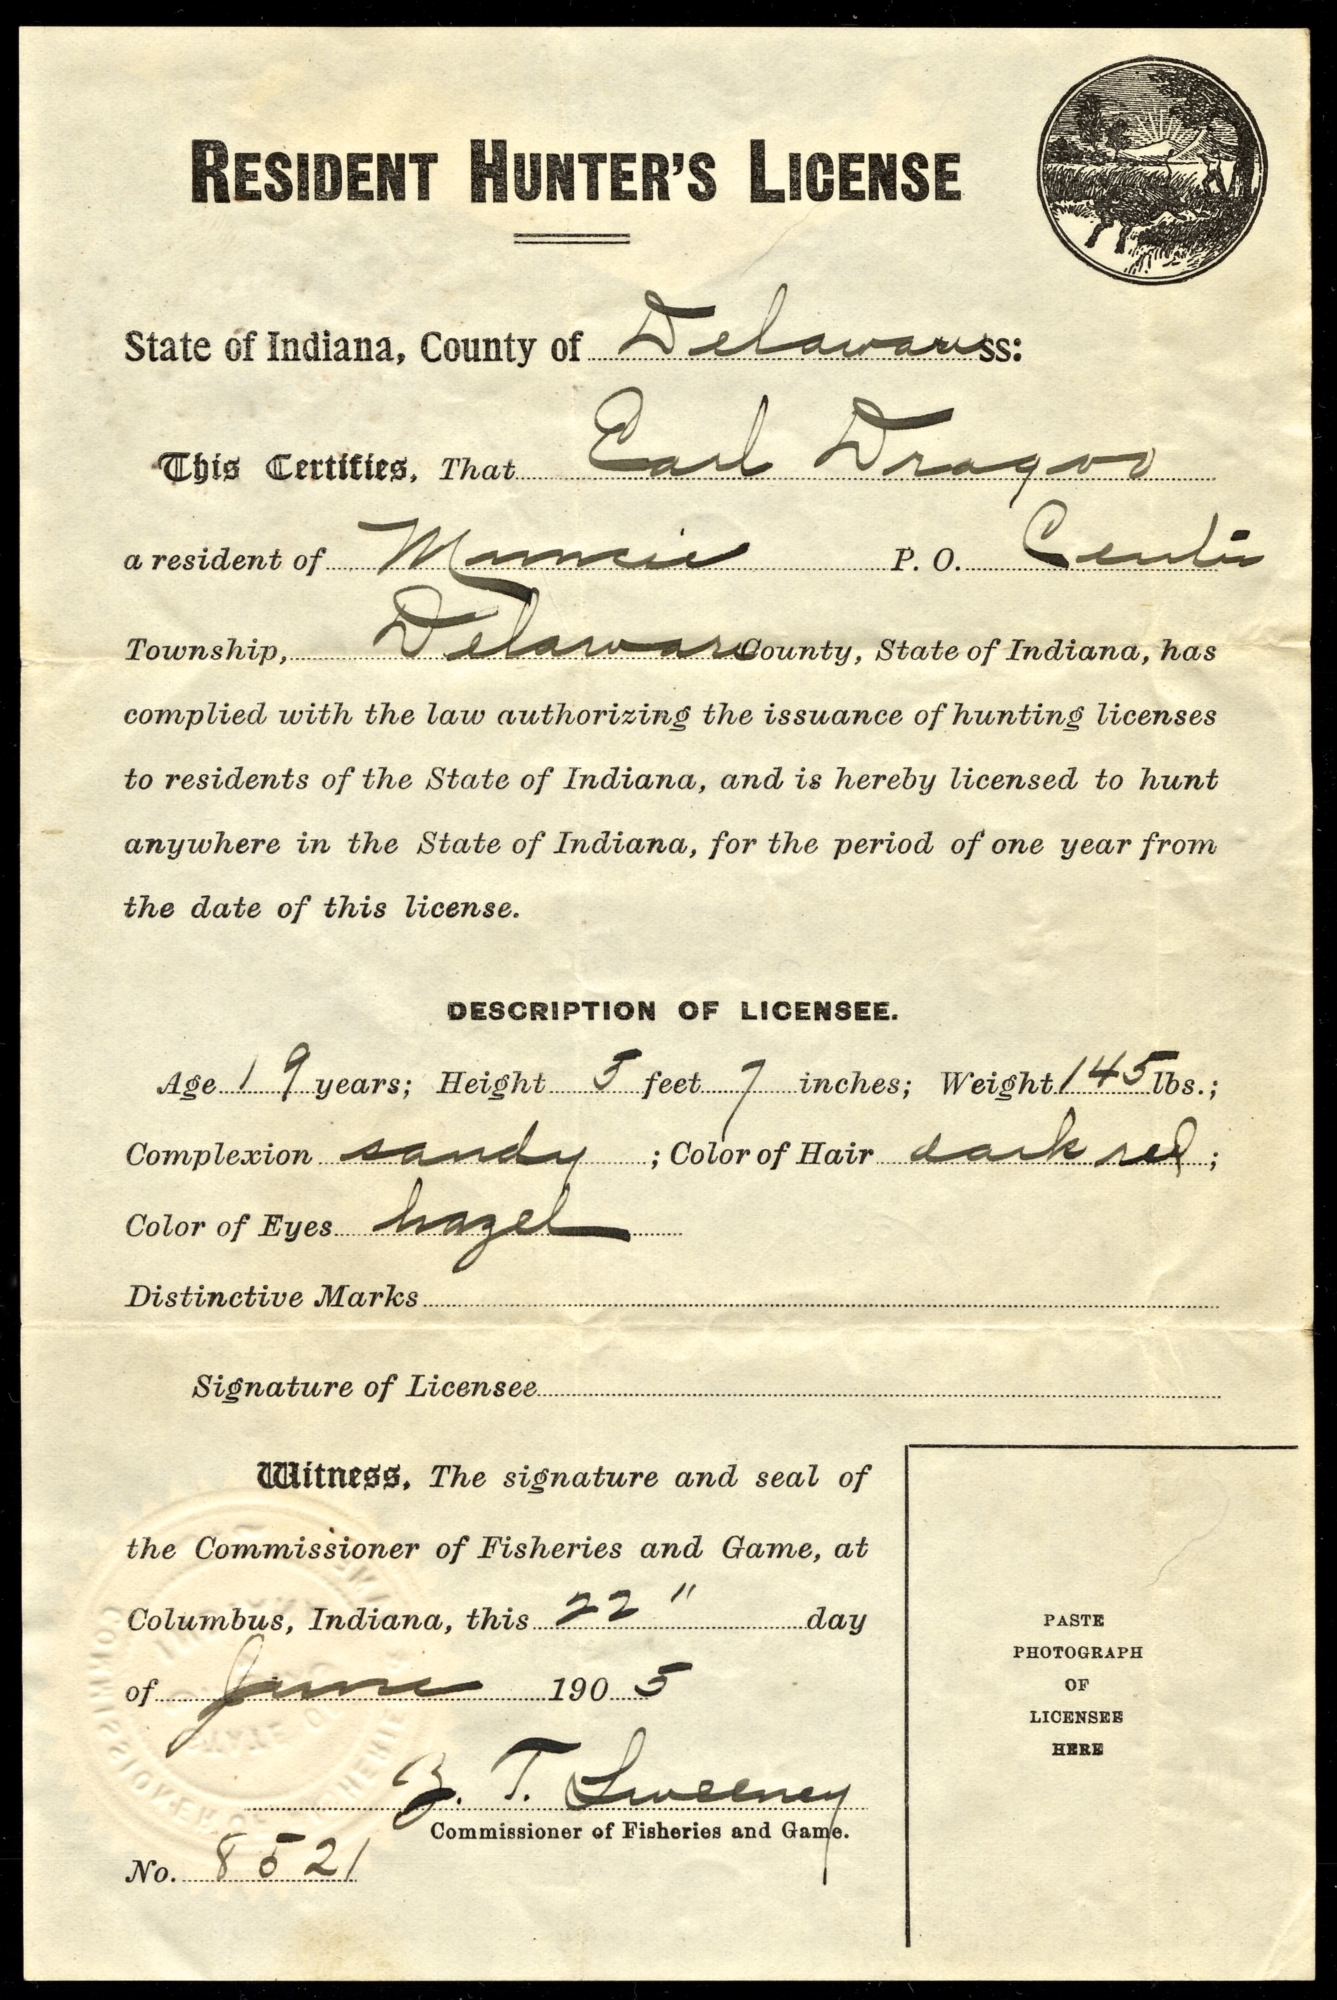 RESIDENT HUNTER'S LICENSE
State of Indiana, County of Delaware ss:
This Certifies, That Earl Dragoo
a resident of Muncie P. O. Center
Township, Delaware County, State of Indiana, has
complied with the law authorizing the issuance of hunting licenses
to residents of the State of Indiana, and is hereby licensed to hunt
anywhere in the State of Indiana, for the period of one year from
the date of this license.
DESCRIPTION OF LICENSEE.
Age 19 years; Height 5 feet 7 inches; Weight 145 lbs.;
Complexion sandy ; Color of Hair dark red ;
Color of Eyes hazel
Distinctive Marks
Signature of Licensee
Witness, The signature and seal of
the Commissioner of Fisheries and Game, at
Columbus, Indiana, this 22" day
of June 1905
Z. T. Sweeney
Commissioner of Fisheries and Game.
No. 8521
PASTE
PHOTOGRAPH
OF
LICENSEE
HERE